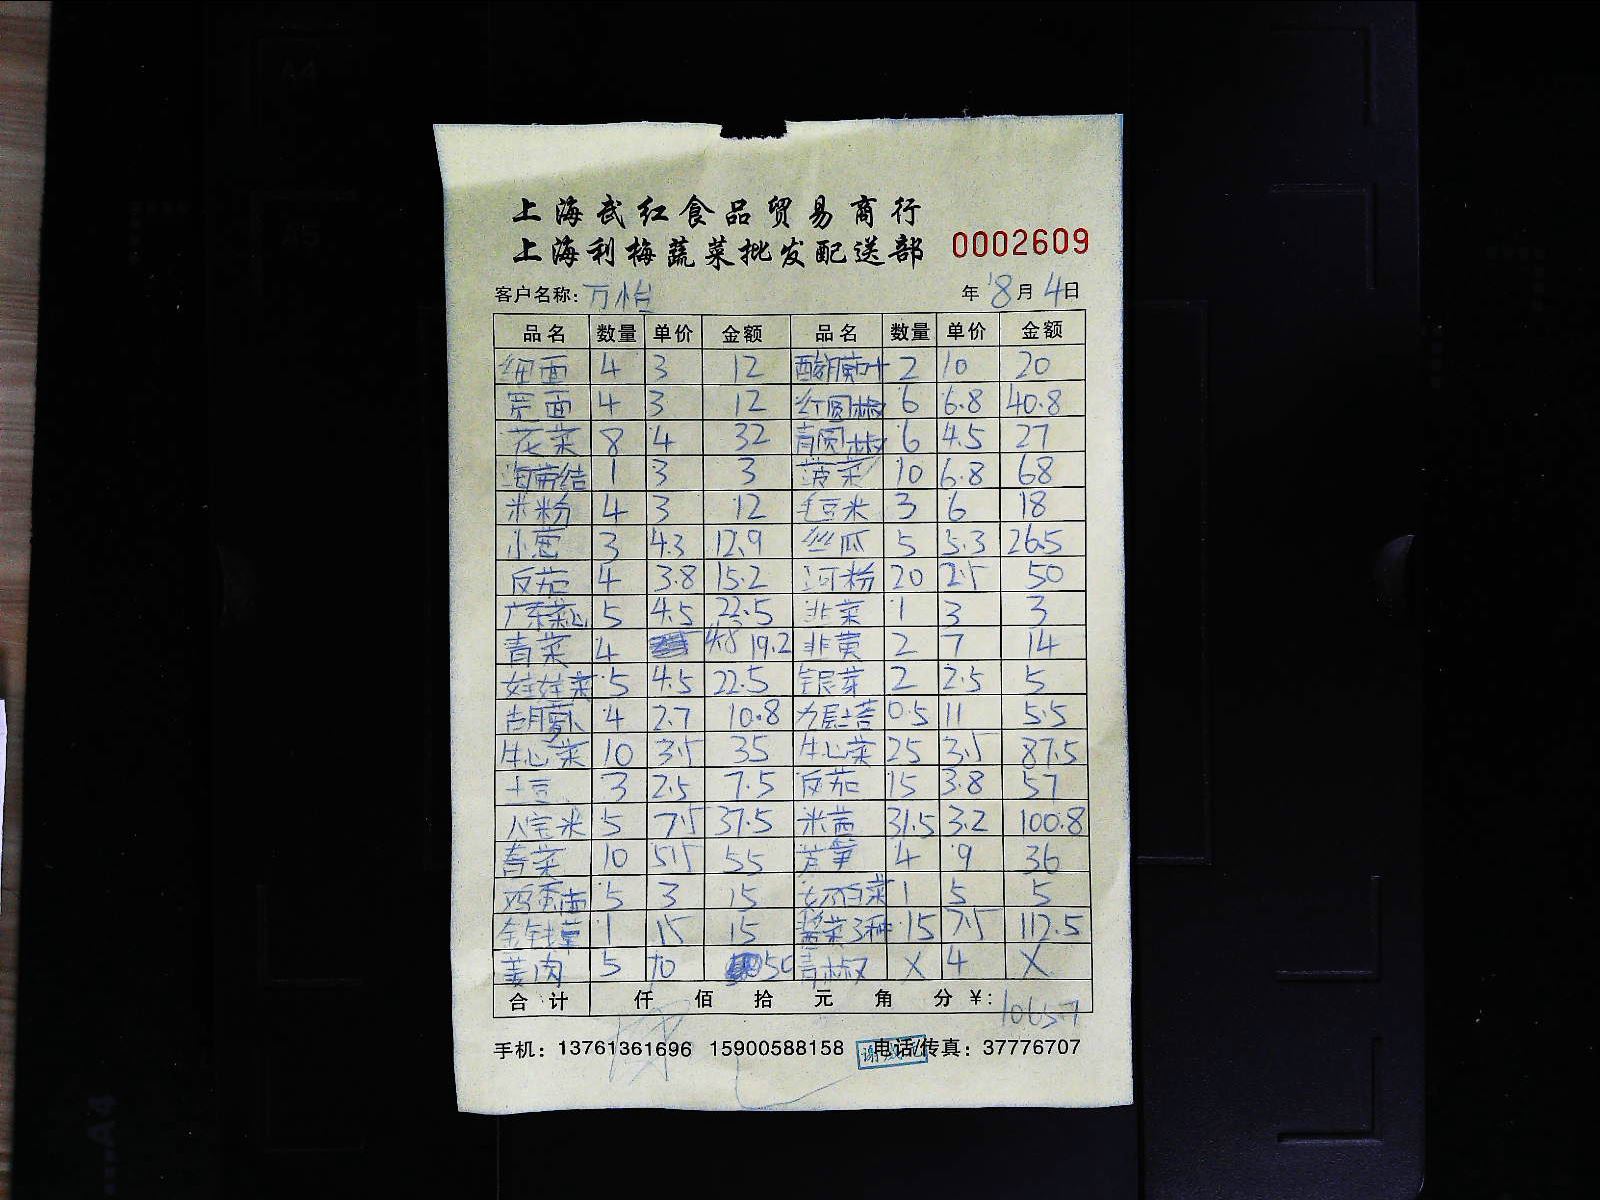 上海武红食品贸易商行
上海利梅蔬菜批发配送部 0002609
客户名称: 万怡 年 8月 4日
品名 数量 单价 金额 品名 数量 单价 金额
细面 4 3 12 酸膜叶 2 10 20
宽面 4 3 12 红圆椒 6 6.8 40.8
花菜 8 4 32 青圆椒 6 4.5 27
海带结 1 3 3 菠菜 10 6.8 68
米粉 4 3 12 毛豆米 3 6 18
小葱 3 4.3 12.9 丝瓜 5 5.3 26.5
反茄 4 3.8 15.2 河粉 20 2.5 50
广东菜心 5 4.5 22.5 韭菜 1 3 3
青菜 4 4.8 19.2 韭黄 2 7 14
娃娃菜 5 4.5 22.5 银芽 2 2.5 5
胡萝卜 4 2.7 10.8 九层塔 0.5 11 5.5
牛心菜 10 3.5 35 牛心菜 25 3.5 87.5
土豆 3 2.5 7.5 反茄 15 3.8 57
八宝米 5 7.5 37.5 米茜 31.5 3.2 100.8
春菜 10 5.5 55 芦笋 4 9 36
鸡蛋面 5 3 15 奶白菜 1 5 5
金钱草 1 15 15 酱菜3种 15 7.5 112.5
姜肉 5 10 50 青椒 X 4 X
合计 仟 佰 拾 元 角 分 ¥: 1065.7
手机: 13761361696 15900588158 电话/传真: 37776707